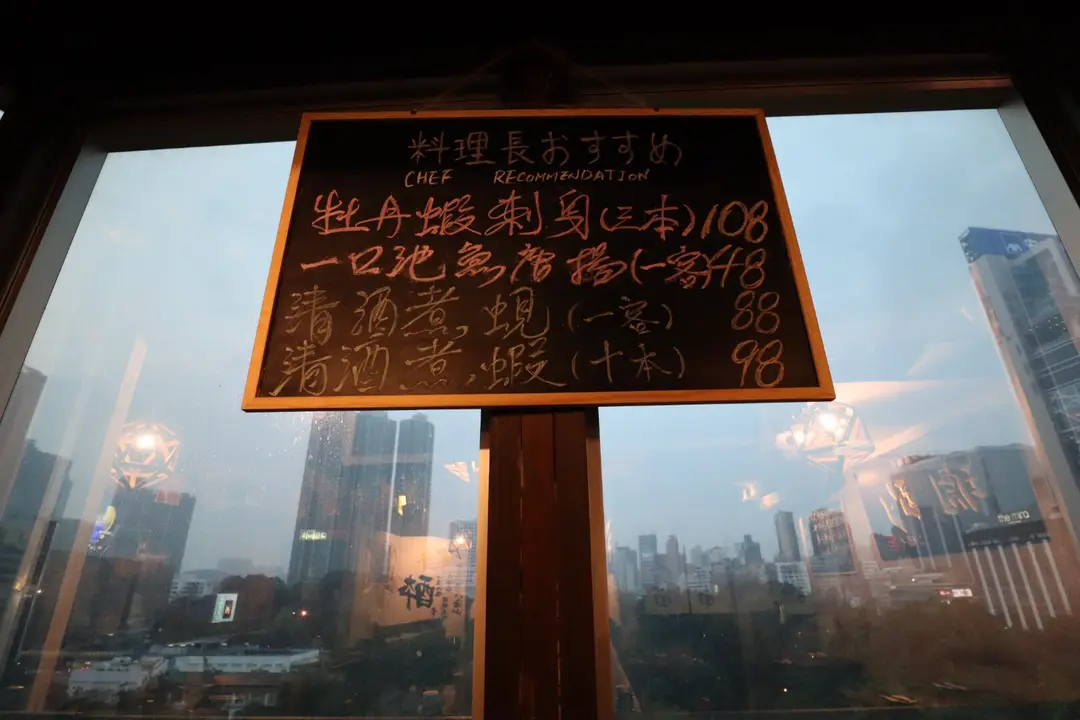 料理長おすすめ
CHEF RECOMMENDATION
牡丹蝦刺身(三本)108
一口池魚唐揚(一客)48
清酒煮蜆(一客) 88
清酒煮蝦(十本) 98
酔
the mira